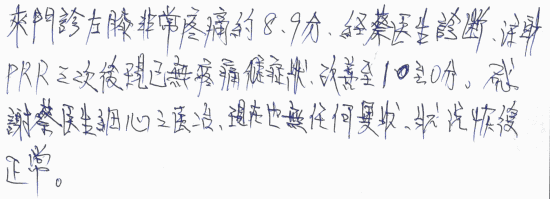 來門診左膝非常疼痛約8.9分.經蔡医生診斷.注射
PRR三次後現已無疼痛症狀.改善至10至0分。感
謝蔡医生細心之医治.現在也無任何異狀.狀況恢復
正常。